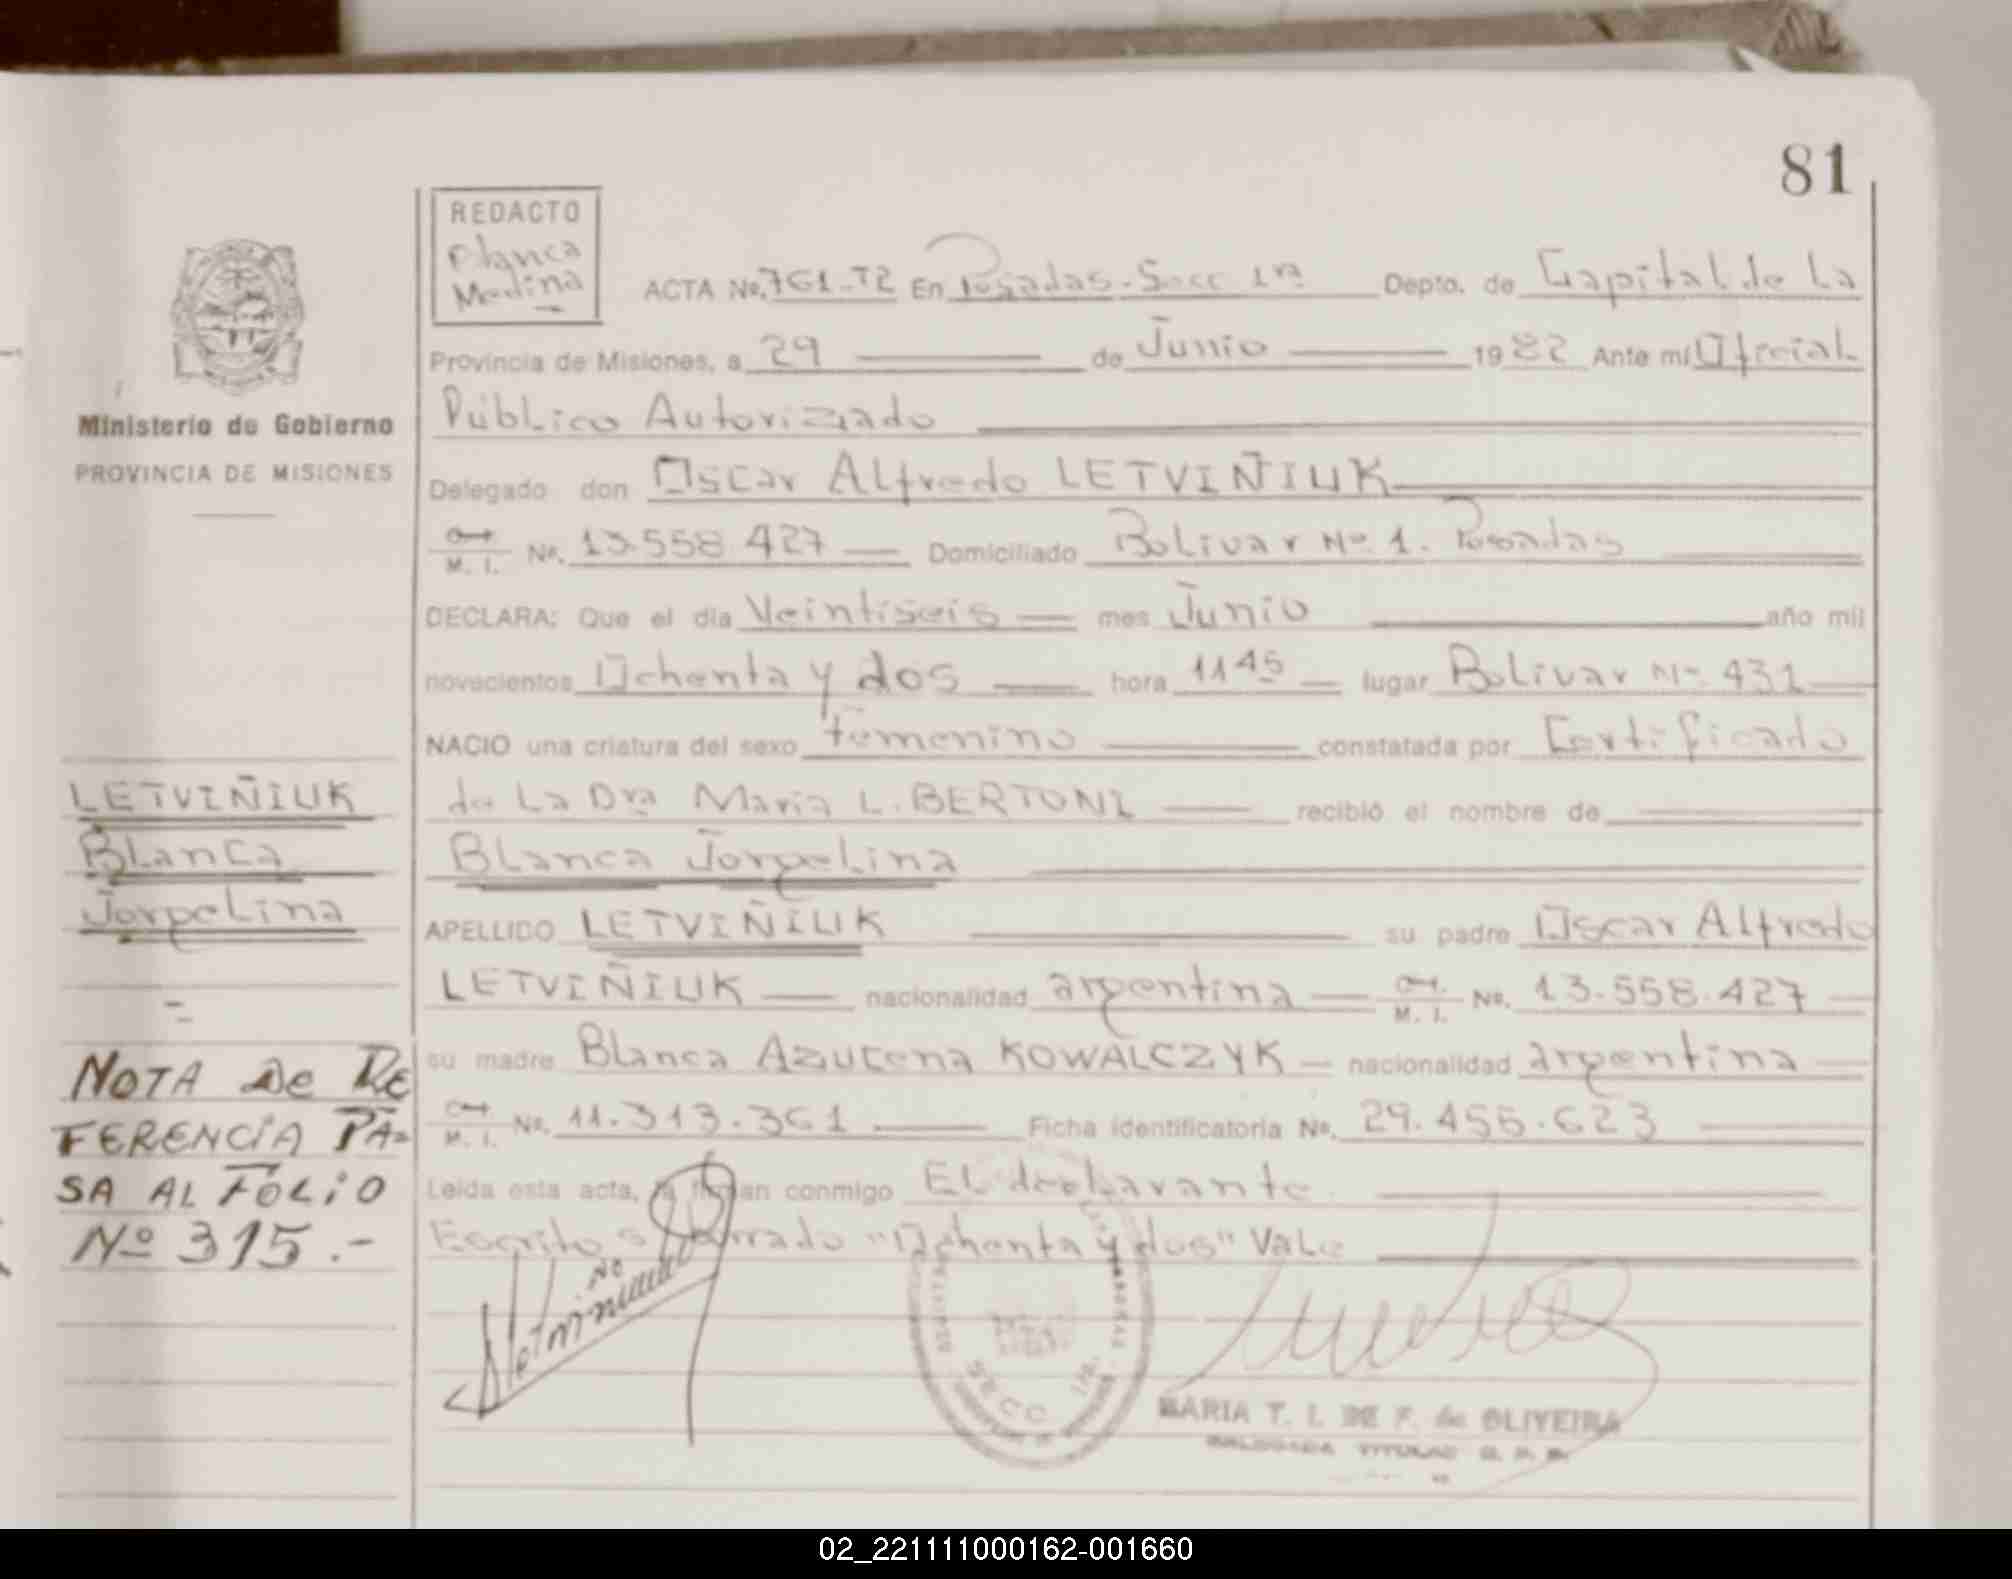 81
REDACTO
Blanca
Medina
ACTA No. 761-T2 En Posadas-Secc 1ra Depto. de Capital de La
Provincia de Misiones, a 29 de Junio 1982 Ante mí Oficial
Público Autorizado
Ministerio de Gobierno
PROVINCIA DE MISIONES
Delegado don Oscar Alfredo LETVIÑIUK
M. I. No. 13.558.427 Domiciliado Bolivar Nº 1. Posadas
DECLARA: Que el día Veintiseis mes Junio año mil
novecientos Ochenta y dos hora 11 45 lugar Bolivar Nº 431
NACIO una criatura del sexo femenino constatada por Certificado
de La Dra Maria L. BERTONI recibió el nombre de
Blanca Jorgelina
APELLIDO LETVIÑIUK su padre Oscar Alfredo
LETVIÑIUK nacionalidad argentina M. I. No. 13.558.427
su madre Blanca Azucena KOWALCZYK nacionalidad argentina
M. I. No. 11.313.361 Ficha identificatoria No. 29.455.623
Leída esta acta, la firman conmigo El declarante
Escrito s/borrado "Ochenta y dos" Vale
LETVIÑIUK
Blanca
Jorgelina
NOTA De RE
FERENCiA PA-
SA AL FOLiO
Nº 315.-
SECC 1ra.
MARIA T. I. DE F. de OLIVEIRA
DELEGADA TITULAR
02_221111000162-001660